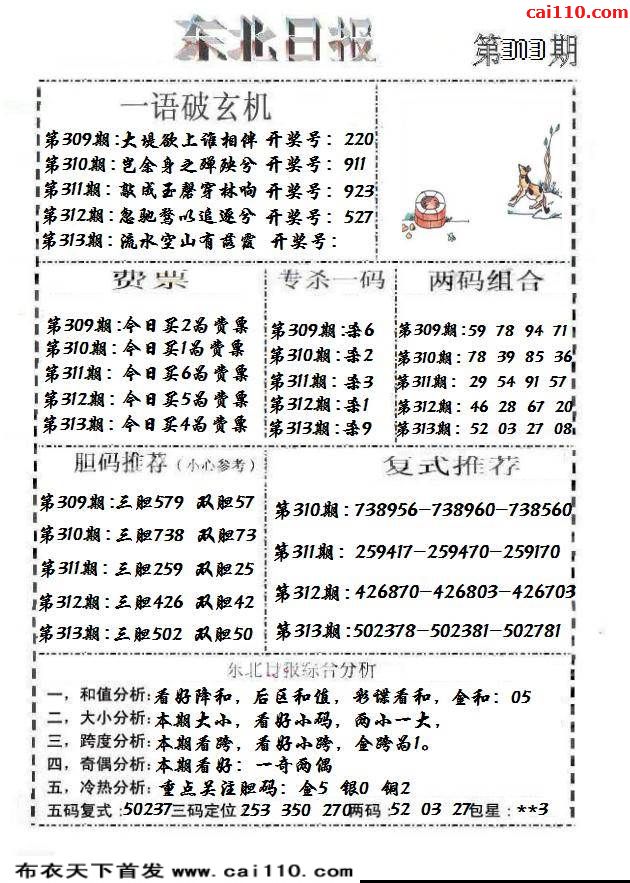 cai110.com
东北日报
第313期
一语破玄机
第309期:大堤欲上谁相伴 开奖号: 220
第310期:岂余身之殚殃兮 开奖号: 911
第311期:敲成玉磬穿林响 开奖号: 923
第312期:忽驰骛以追逐兮 开奖号: 527
第313期:流水空山有落霞 开奖号:
费票
第309期:今日买2为费票
第310期:今日买1为费票
第311期:今日买6为费票
第312期:今日买5为费票
第313期:今日买4为费票
专杀一码
第309期:杀6
第310期:杀2
第311期:杀3
第312期:杀1
第313期:杀9
两码组合
第309期:59 78 94 71
第310期:78 39 85 36
第311期: 29 54 91 57
第312期:46 28 67 20
第313期:52 03 27 08
胆码推荐(小心参考)
第309期:三胆579 双胆57
第310期:三胆738 双胆73
第311期:三胆259 双胆25
第312期:三胆426 双胆42
第313期:三胆502 双胆50
复式推荐
第310期:738956-738960-738560
第311期: 259417-259470-259170
第312期:426870-426803-426703
第313期:502378-502381-502781
东北日报综合分析
一,和值分析:看好降和,后区和值,彩蝶看和,金和:05
二,大小分析:本期大小,看好小码,两小一大,
三,跨度分析:本期看跨,看好小跨,金跨为1。
四,奇偶分析:本期看好:一奇两偶
五,冷热分析:重点关注胆码:金5 银0 铜2
五码复式:50237三码定位253 350 270两码:52 03 27包星:**3
布衣天下首发 www.cai110.com